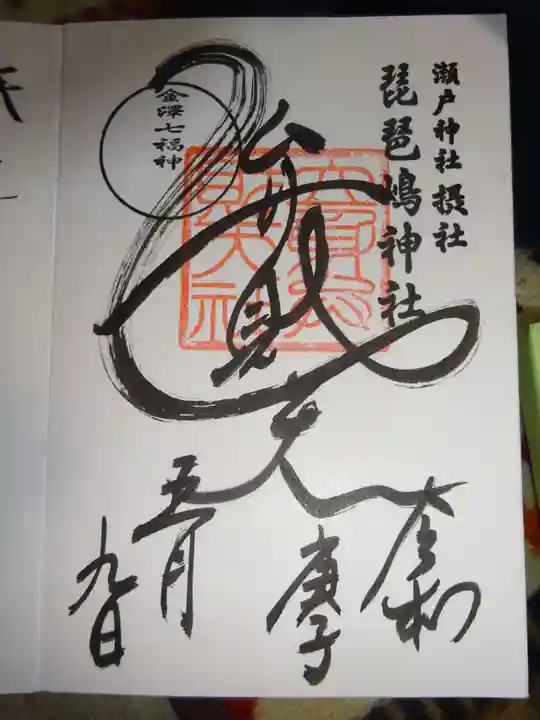 瀬戸神社摂社
琵琶嶋神社
令和
庚子
弁財天
金澤七福神
五月
九日